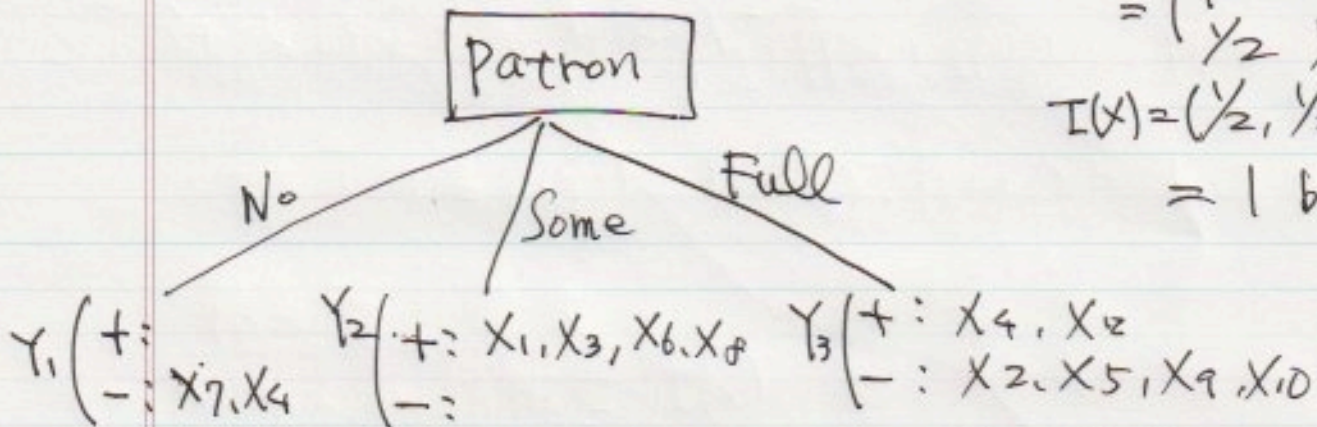 = (
1/2
Patron
I(X)=(1/2, 1/
= 1 b
No
Some
Full
Y1 ( +:
-: X7, X4
Y2 ( +: X1, X3, X6, X8
-:
Y3 ( +: X4, X12
-: X2, X5, X9, X10